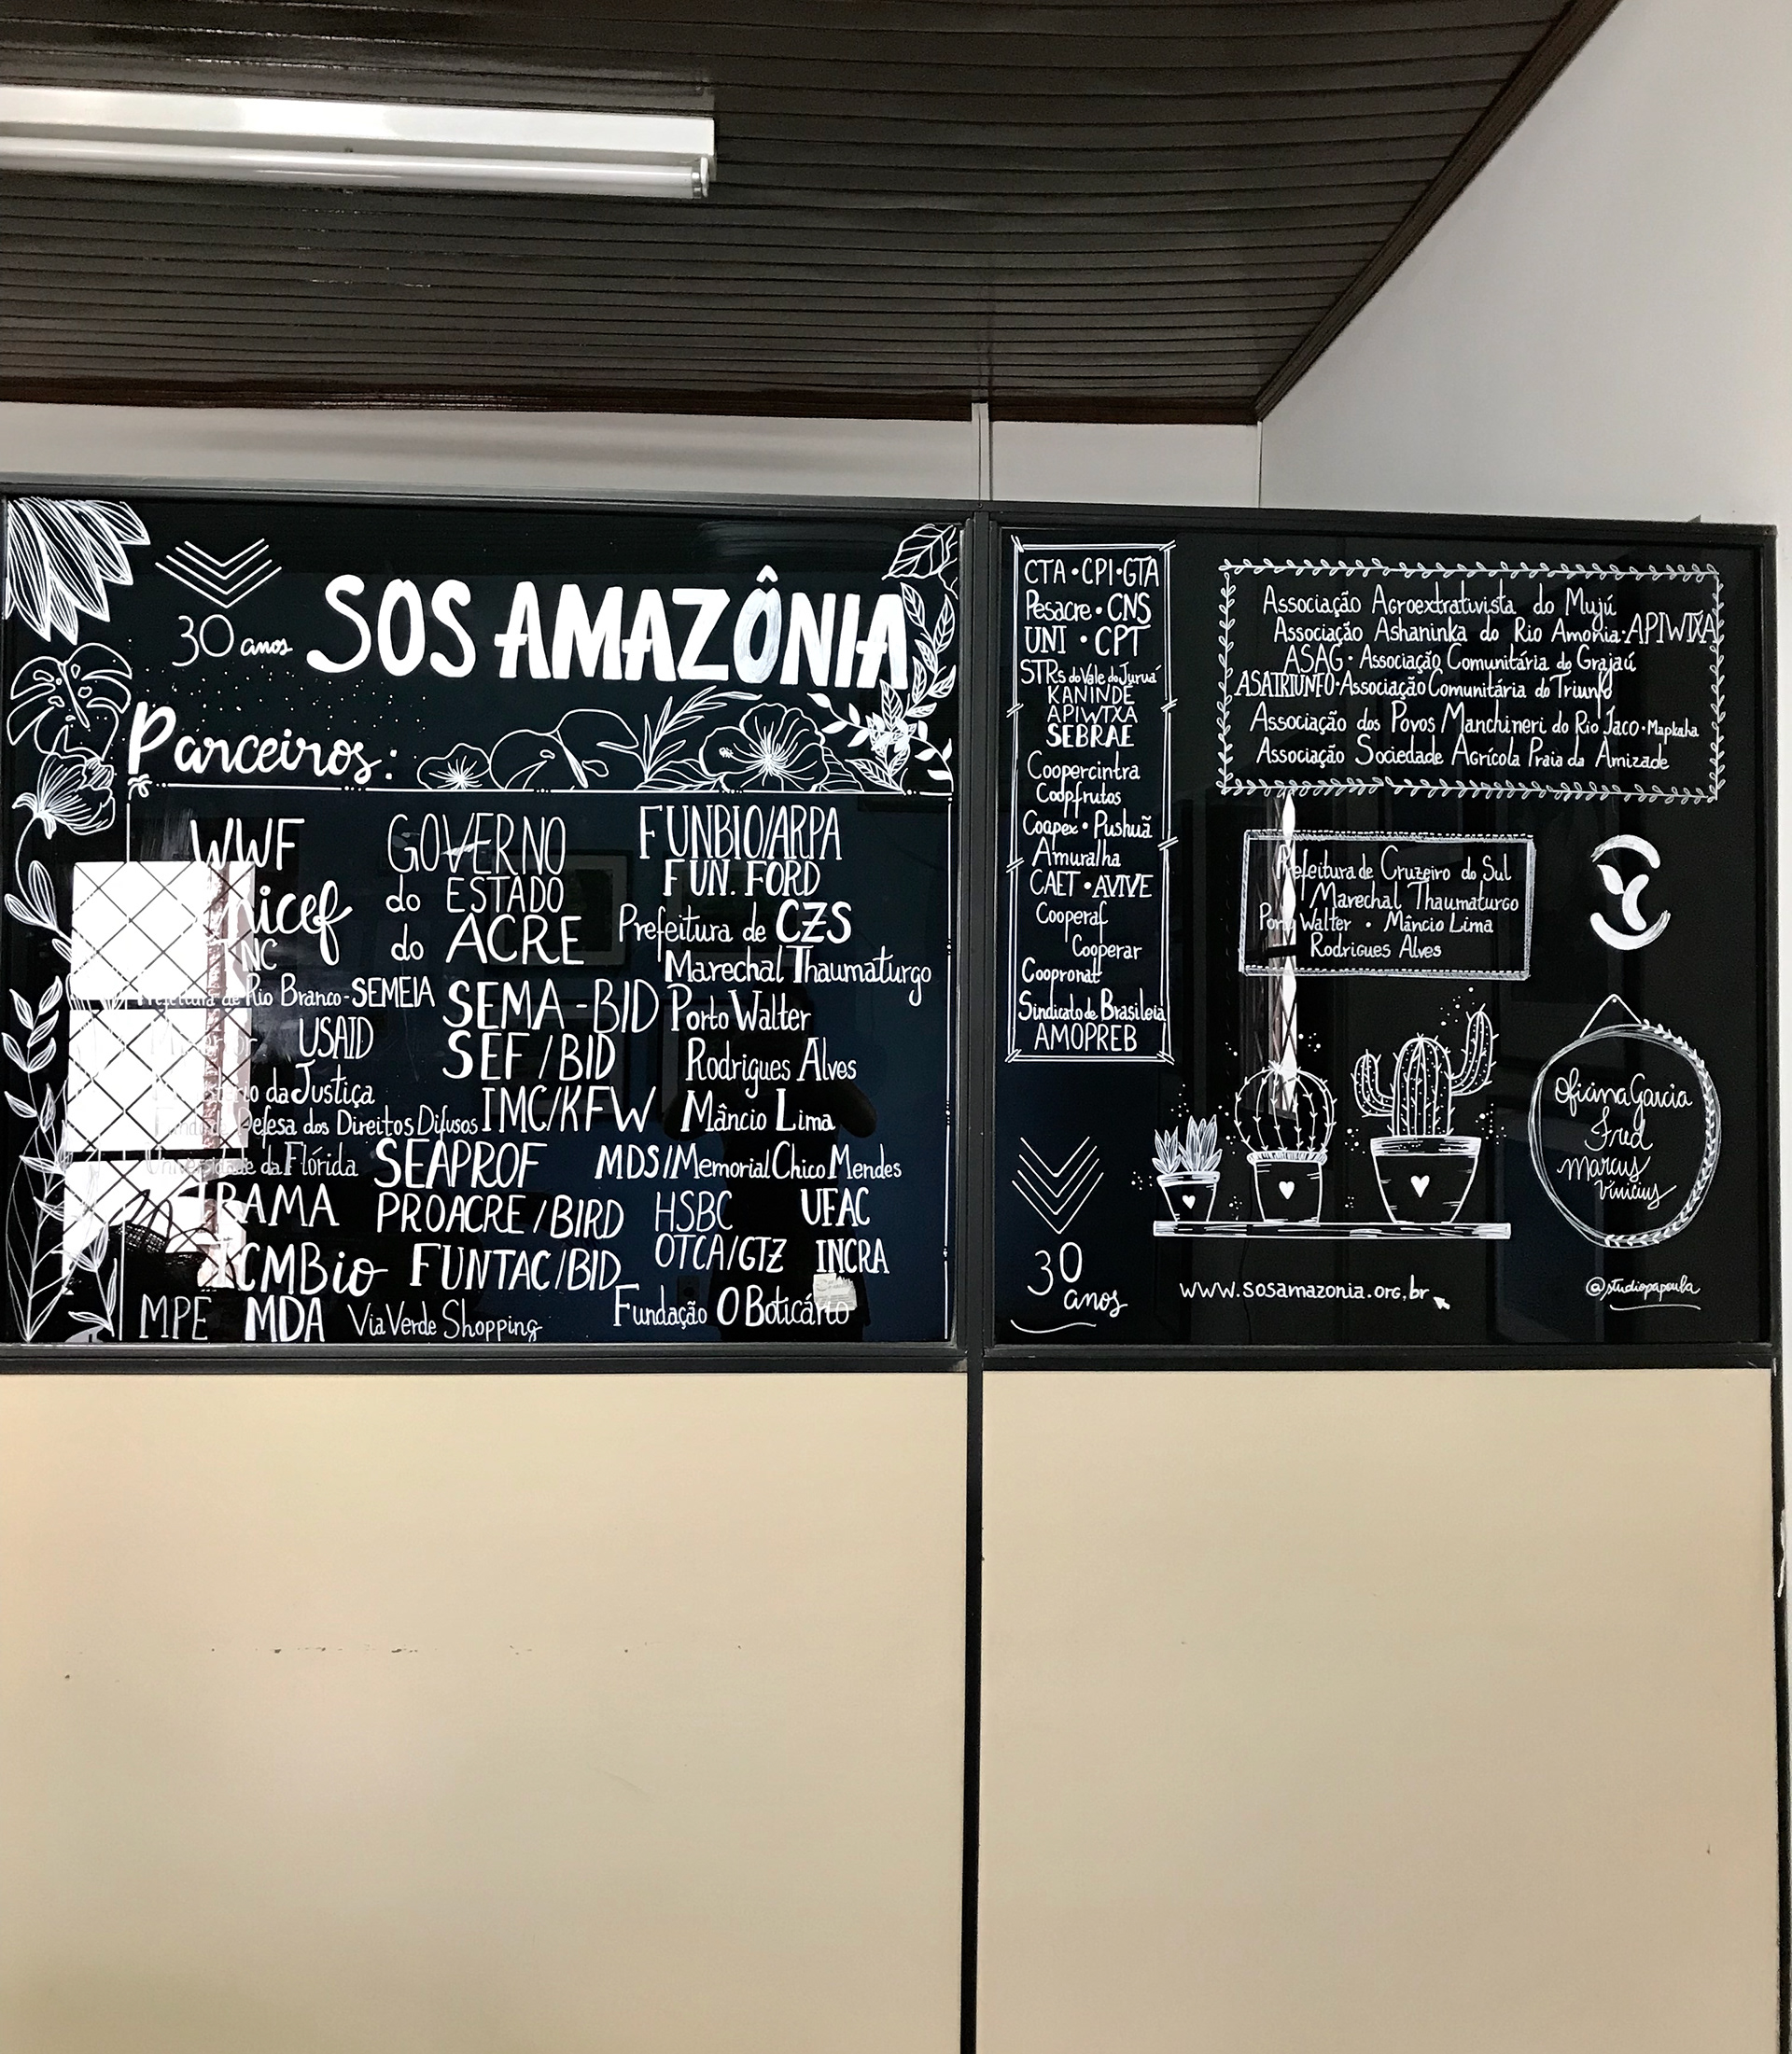 30 anos SOS AMAZÔNIA
Parceiros:
WWF
unicef
NC
Prefeitura de Rio Branco-SEMEIA
USAID
Ministério da Justiça
Defesa dos Direitos Difusos
Universidade da Flórida
IBAMA
ICMBio
MPE MDA Via Verde Shopping
GOVERNO
do ESTADO
do ACRE
SEMA-BID
SEF/BID
IMC/KFW
SEAPROF
PROACRE/BIRD
FUNTAC/BID
FUNBIO/ARPA
FUN. FORD
Prefeitura de CZS
Marechal Thaumaturgo
Porto Walter
Rodrigues Alves
Mâncio Lima
MDS/Memorial Chico Mendes
HSBC UFAC
OTCA/GTZ INCRA
Fundação O Boticário
CTA•CPI•GTA
Pesacre•CNS
UNI • CPT
STRs do Vale do Juruá
KANINDE
APIWTXA
SEBRAE
Coopercintra
Coopfrutos
Coapex•Pushuã
Amuralha
CAET•AVIVE
Cooperaf
Cooperar
Coopronat
Sindicato de Brasileia
AMOPREB
30
anos
Associação Agroextrativista do Mujú
Associação Ashaninka do Rio Amônia•APIWTXA
ASAG•Associação Comunitária do Grajaú
ASATRIUNFO•Associação Comunitária do Triunfo
Associação dos Povos Manchineri do Rio Iaco•Mapkaha
Associação Sociedade Agrícola Praia da Amizade
Prefeitura de Cruzeiro do Sul
Marechal Thaumaturgo
Porto Walter • Mâncio Lima
Rodrigues Alves
Oficina Garcia
Fred
Marcus
Vinicius
www.sosamazonia.org.br
@studiopapoula